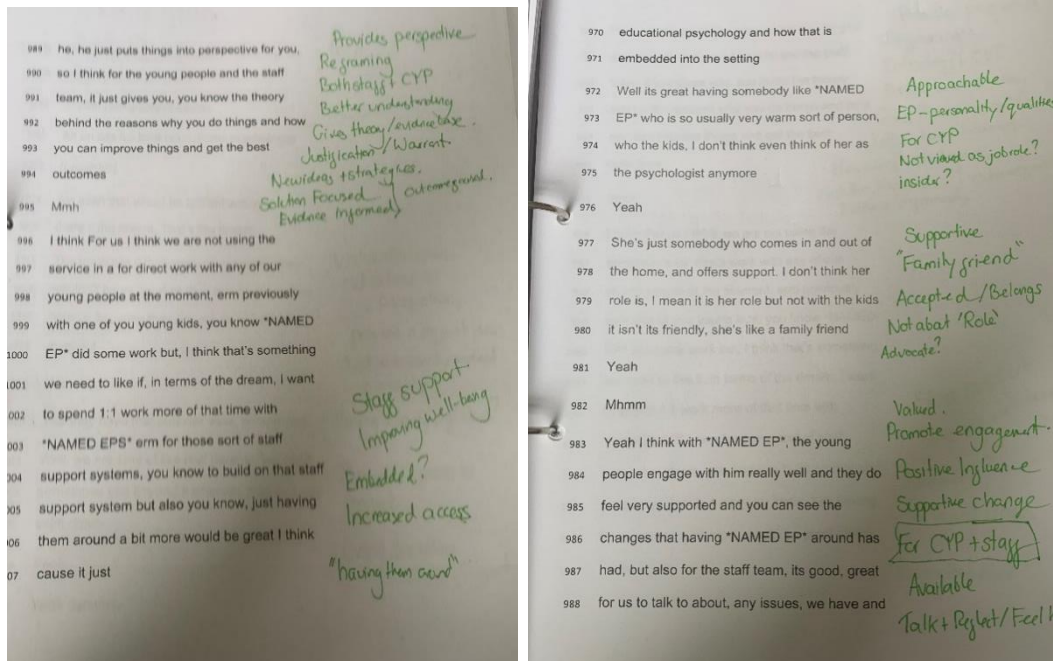 989 he, he just puts things into perspective for you,
990 so I think for the young people and the staff
991 team, it just gives you, you know the theory
992 behind the reasons why you do things and how
993 you can improve things and get the best
994 outcomes
995 Mmh
996 I think For us I think we are not using the
997 service in a for direct work with any of our
998 young people at the moment, erm previously
999 with one of you young kids, you know *NAMED
1000 EP* did some work but, I think that's something
1001 we need to like if, in terms of the dream, I want
002 to spend 1:1 work more of that time with
003 *NAMED EPS* erm for those sort of staff
004 support systems, you know to build on that staff
005 support system but also you know, just having
06 them around a bit more would be great I think
07 cause it just
Provides perspective
Reframing
Both staff + CYP
Better understanding
Gives theory/evidence base.
Justification / Warrant.
New ideas + strategies.
Solution Focused
Evidence Informed
Staff support
Improving well-being
Embedded?
Increased access
"having them around"
970 educational psychology and how that is
971 embedded into the setting
972 Well its great having somebody like *NAMED
973 EP* who is so usually very warm sort of person,
974 who the kids, I don't think even think of her as
975 the psychologist anymore
976 Yeah
977 She's just somebody who comes in and out of
978 the home, and offers support. I don't think her
979 role is, I mean it is her role but not with the kids
980 it isn't its friendly, she's like a family friend
981 Yeah
982 Mhmm
983 Yeah I think with *NAMED EP*, the young
984 people engage with him really well and they do
985 feel very supported and you can see the
986 changes that having *NAMED EP* around has
987 had, but also for the staff team, its good, great
988 for us to talk to about, any issues, we have and
Approachable
EP-personality/qualities
For CYP
Not viewed as job role?
insider?
Supportive
"Family friend"
Accepted / Belongs
Not abat 'Role'
Advocate?
Valued.
Promote engagement.
Positive Influence
Supportive change
For CYP + staff
Available
Talk + Reflect / Feel